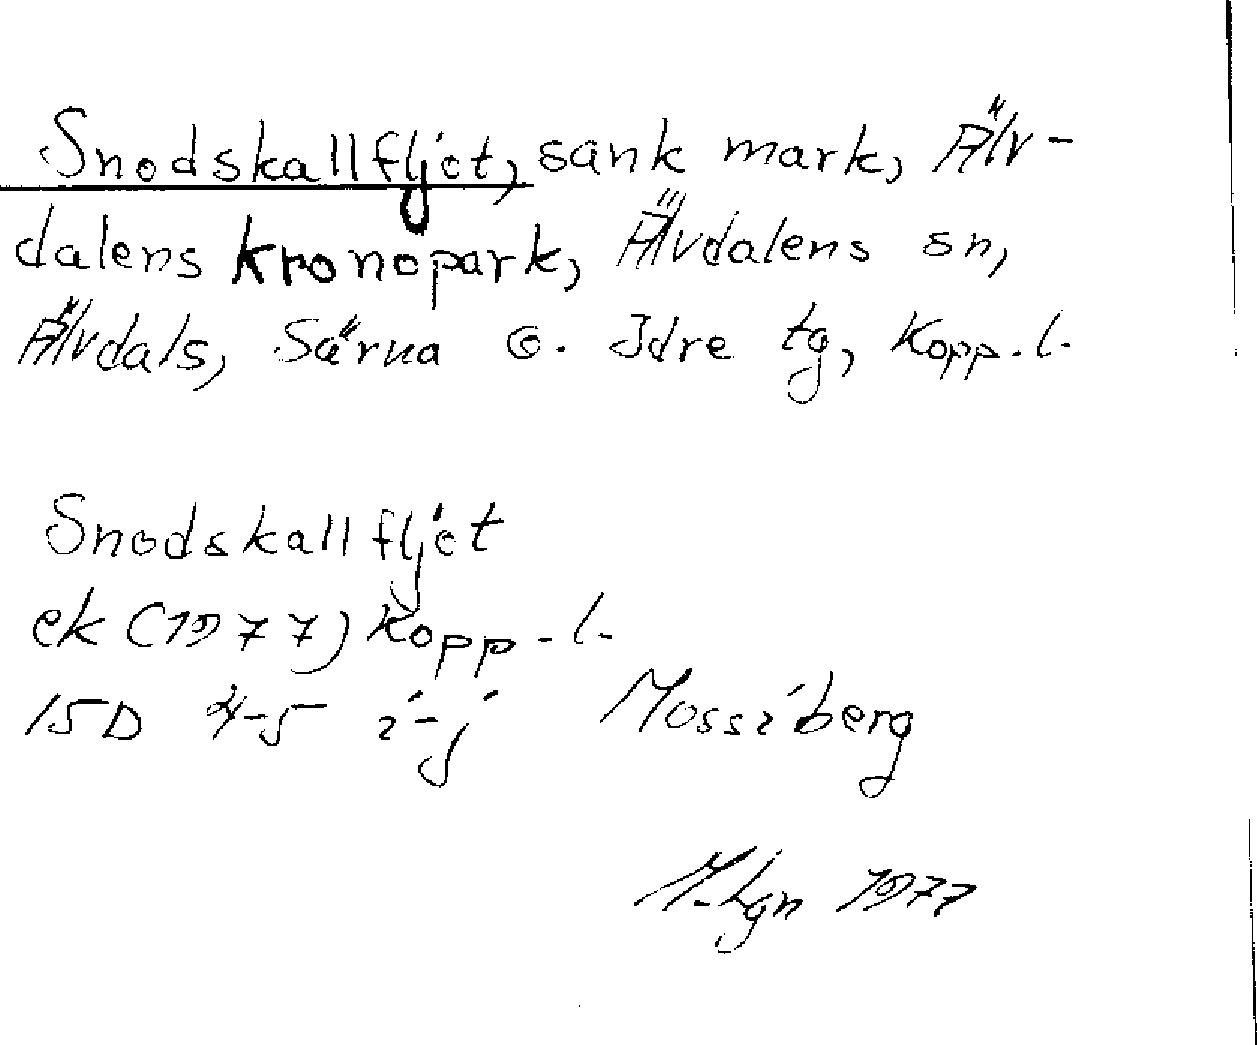 Snodskallfljot, sank mark, Älv-
dalens kronopark, Älvdalens sn,
Älvdals, Särna o. Idre tg, Kopp. l.
Snodskallfljot
ek (1977) Kopp. l.
15D 4-5 i-j Mossiberg
1977